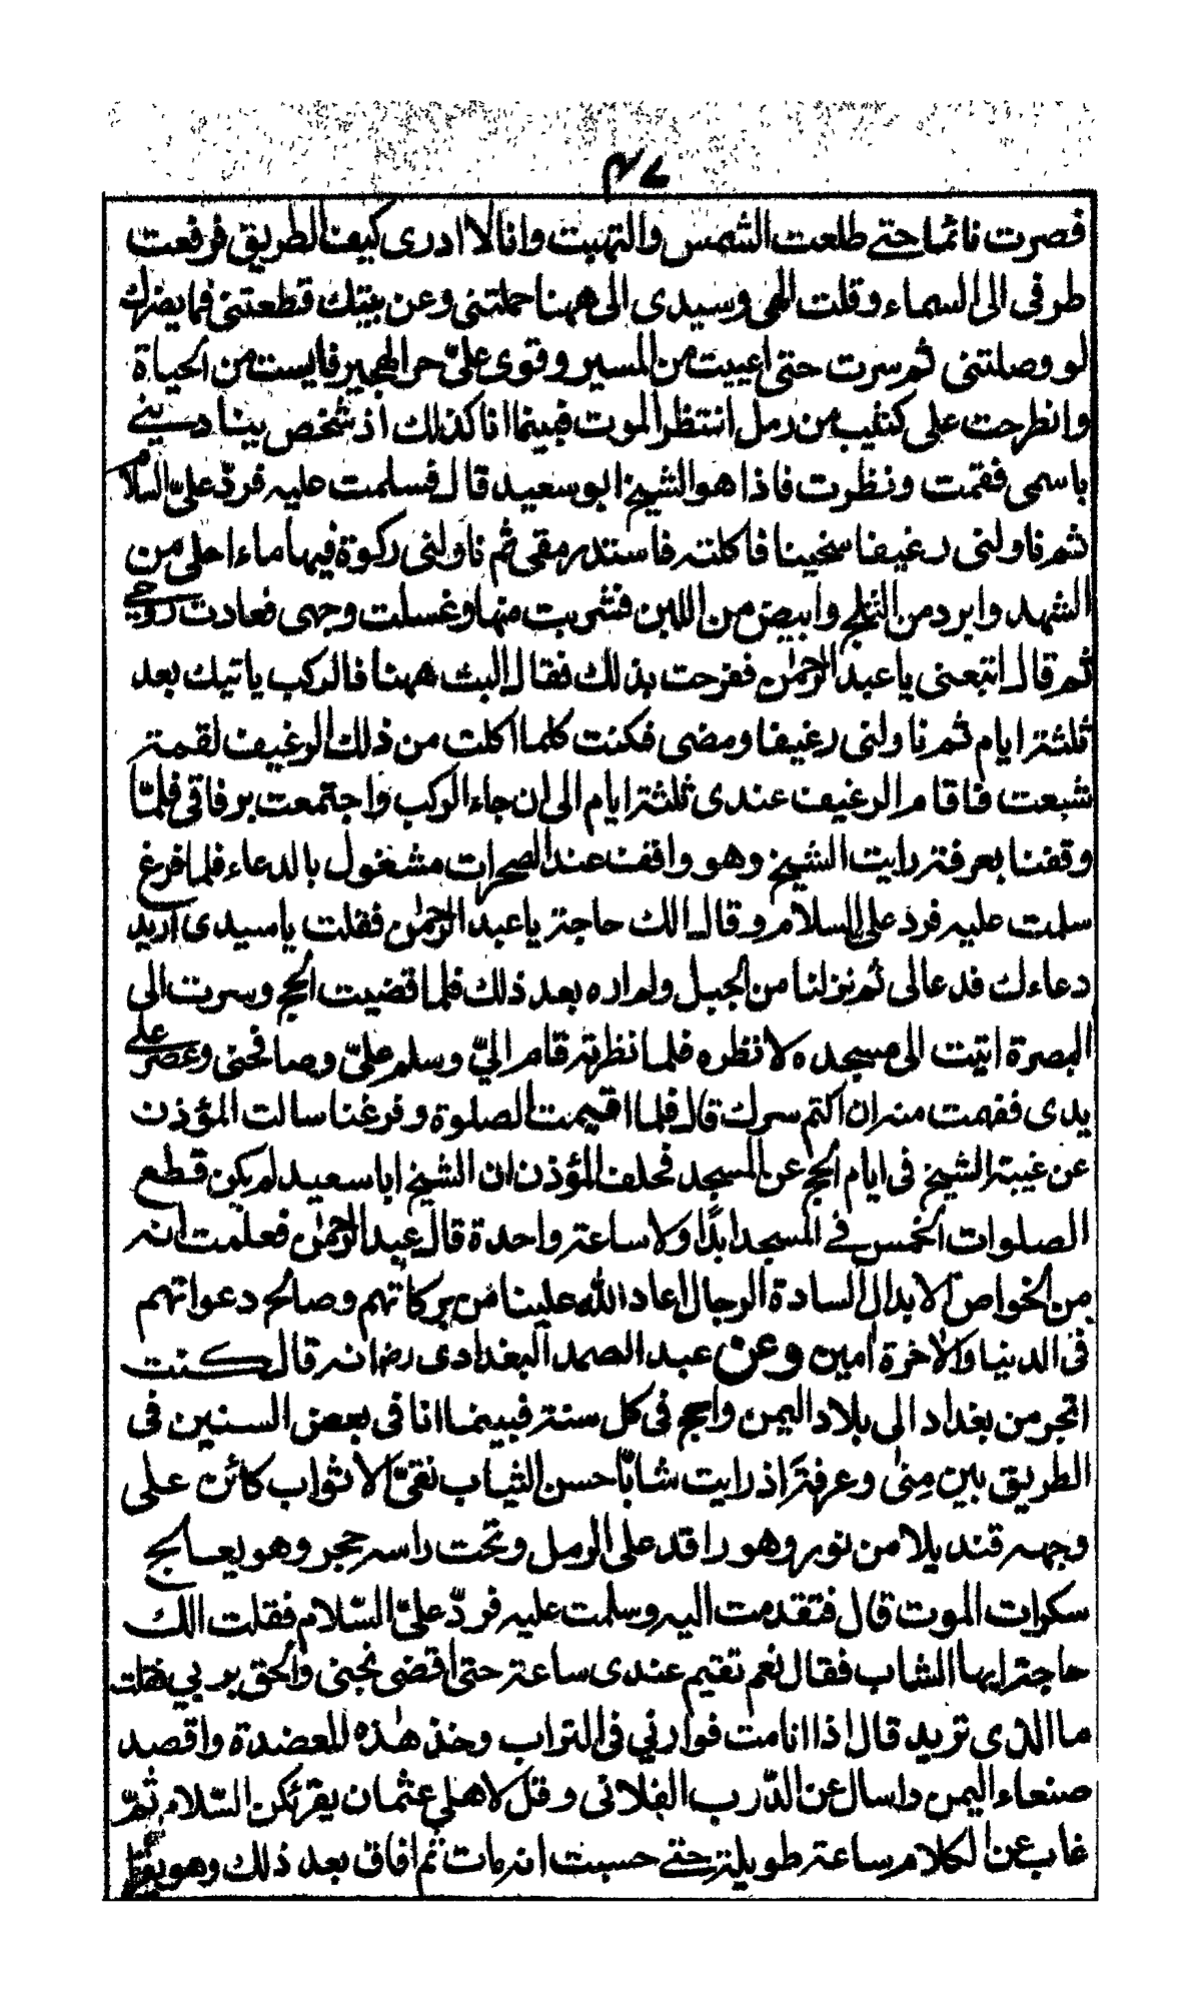 ٤٧
فصرت نائما حتى طلعت الشمس والتهبت وانا لا ادرى كيف الطريق فرفعت
طرفى الى السماء وقلت الهى وسيدى الى ههنا حملتنى وعن بيتك قطعتنى فما يضرك
لو وصلتنى ثم سرت حتى اعييت من المسير وقوى علىّ حر الهجير فايست من الحياة
وانطرحت على كثيب من رمل انتظر الموت فبينما انا كذلك اذ شخص ينادينى
باسمى فقمت ونظرت فاذا هو الشيخ ابو سعيد قال فسلمت عليه فردّ علىّ السلام
ثم ناولنى رغيفا سخينا فاكلته فاستد رمقى ثم ناولنى ركوة فيها ماء احلى من
الشهد وابرد من الثلج وابيض من اللبن فشربت منها وغسلت وجهى فعادت روحى
ثم قال اتبعنى يا عبد الرحمٰن ففرحت بذلك فقال البث ههنا فالركب ياتيك بعد
ثلثة ايام ثم ناولنى رغيفا ومضى فكنت كلما اكلت من ذلك الرغيف لقمة
شبعت فاقام الرغيف عندى ثلثة ايام الى ان جاء الركب واجتمعت برفاقى فلمّا
وقفنا بعرفة رايت الشيخ وهو واقف عند الصخرات مشغول بالدعاء فلما فرغ
سلمت عليه فرد علىّ السلام وقال الك حاجة يا عبد الرحمٰن فقلت يا سيدى اريد
دعاءك فدعا لى ثم نزلنا من الجبل ولم اره بعد ذلك فلما قضيت الحج وسرت الى
البصرة اتيت الى مسجده لانظره فلما نظرته قام اليّ وسلم علىّ وصافحنى وعصر على
يدى ففهمت منه ان اكتم سرك قال فلما اقيمت الصلوة وفرغنا سالت المؤذن
عن غيبة الشيخ فى ايام الحج عن المسجد فحلف المؤذن ان الشيخ ابا سعيد لم يكن قطع
الصلوات الخمس فى المسجد ابدًا ولا ساعة واحدة قال عبد الرحمٰن فعلمت انه
من الخواص الابدال السادة الرجال اعاد الله علينا من بركاتهم وصالح دعواتهم
فى الدنيا والاخرة آمين وعن عبد الصمد البغدادى رضه انه قال كنت
اتجر من بغداد الى بلاد اليمن واحج فى كل سنة فبينما انا فى بعض السنين فى
الطريق بين مِنىٰ وعرفة اذ رايت شابًا حسن الثياب نقىّ الاثواب كائن على
وجهه قنديلا من نور وهو راقد على الرمل وتحت راسه حجر وهو يعالج
سكرات الموت قال فتقدمت اليه وسلمت عليه فردّ علىّ السّلام فقلت الك
حاجة ايها الشاب فقال نعم تقيم عندى ساعة حتى اقضى نحبى والحق بربي فقلت
ما الذى تريد قال اذا انا مت فوارني فى التراب وخذ هٰذه المعضدة واقصد
صنعاء اليمن واسال عن الدّرب الفلانى وقل لاهلى عثمان يقرئكن السّلام ثمّ
غاب عن الكلام ساعة طويلة حتى حسبت انه مات ثم افاق بعد ذلك وهو يقرا